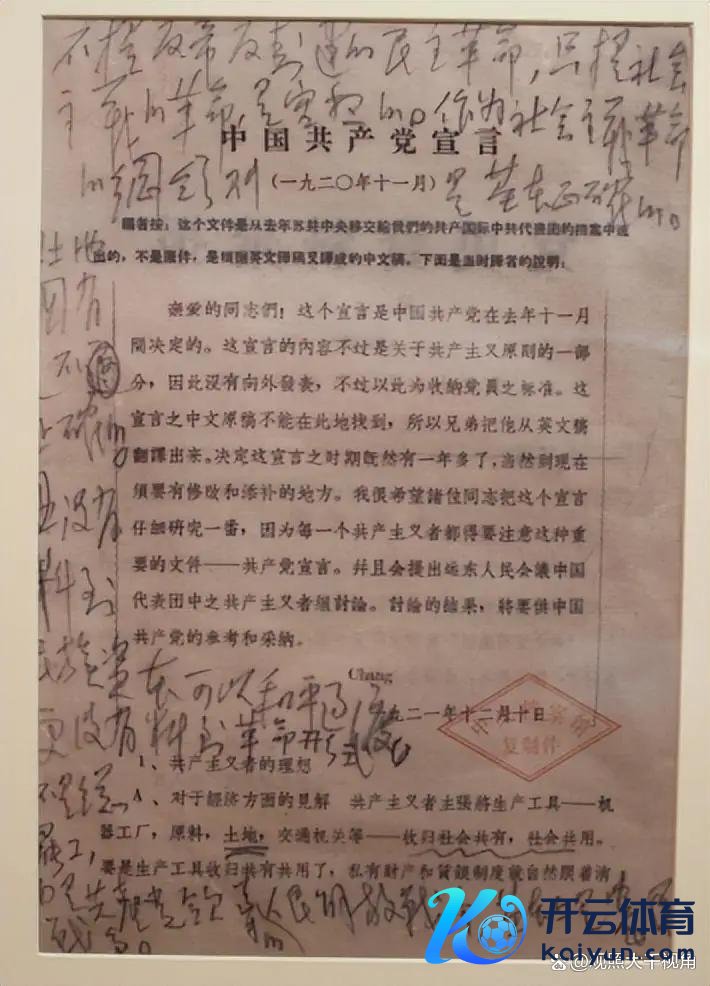 不提反帝反封建的民主革命,只提社会
主义的革命,是空想的。作为社会主义革命
的纲领则是基本正确的。
中国共产党宣言
(一九二〇年十一月)
編者按:这个文件是从去年苏共中央移交給我們的共产国际中共代表团的档案中选
出的,不是原件,是根据英文譯稿又譯成的中文稿。下面是当时譯者的說明:
亲爱的同志們!这个宣言是中国共产党在去年十一月
間决定的。这宣言的內容不过是关于共产主义原則的一部
分,因此沒有向外發表,不过以此为收納党員之标准。这
宣言之中文原稿不能在此地找到,所以兄弟把他从英文稿
翻譯出来。决定这宣言之时期旣然有一年多了,当然到現在
須要有修改和添补的地方。我很希望諸位同志把这个宣言
仔細研究一番,因为每一个共产主义者都得要注意这种重
要的文件——共产党宣言。幷且会提出远东人民会議中国
代表团中之共产主义者組討論。討論的結果,将要供中国
共产党的参考和采納。
Chang
一九二一年十二月十日
复制件
1、共产主义者的理想
A、对于經济方面的見解 共产主义者主張将生产工具——机
器工厂,原料,土地,交通机关等——收归社会共有,社会共用。
要是生产工具收归共有共用了,私有财产和賃銀制度就自然跟着消
土地
国有
不
正确的
且没有
料到
民族资本可以和平过渡
更没有料到革命形式
不是总
罢工,
而是共产党领导人民解放战争
开云体育
Kaiyun.com
@观照大千视角